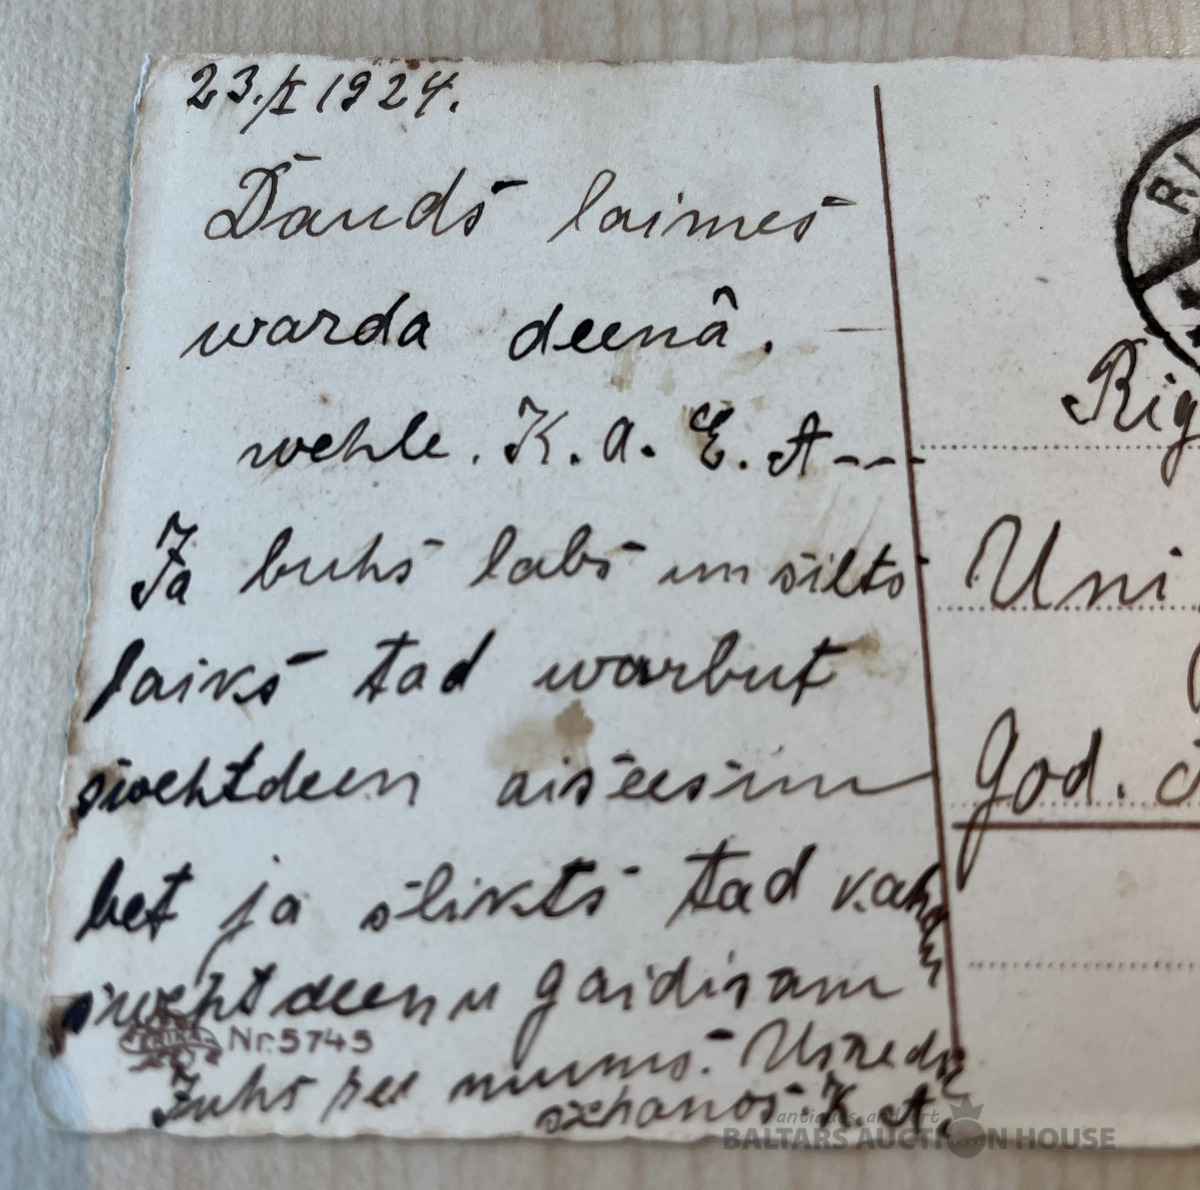 23./I 1924.
Daudš laimes
warda deenâ.
wehle. K. A. E. A---
Ja buhs labs un silts
laiks tad warbut
swehtdeen aisěesim
bet ja slikts tad kahdu
swehtdeenu gaidisam
Nr. 5745
Juhs pee mums.
K. A.
RI
Rig
Uni
god.
antiques and art
BALTARS AUCTION HOUSE